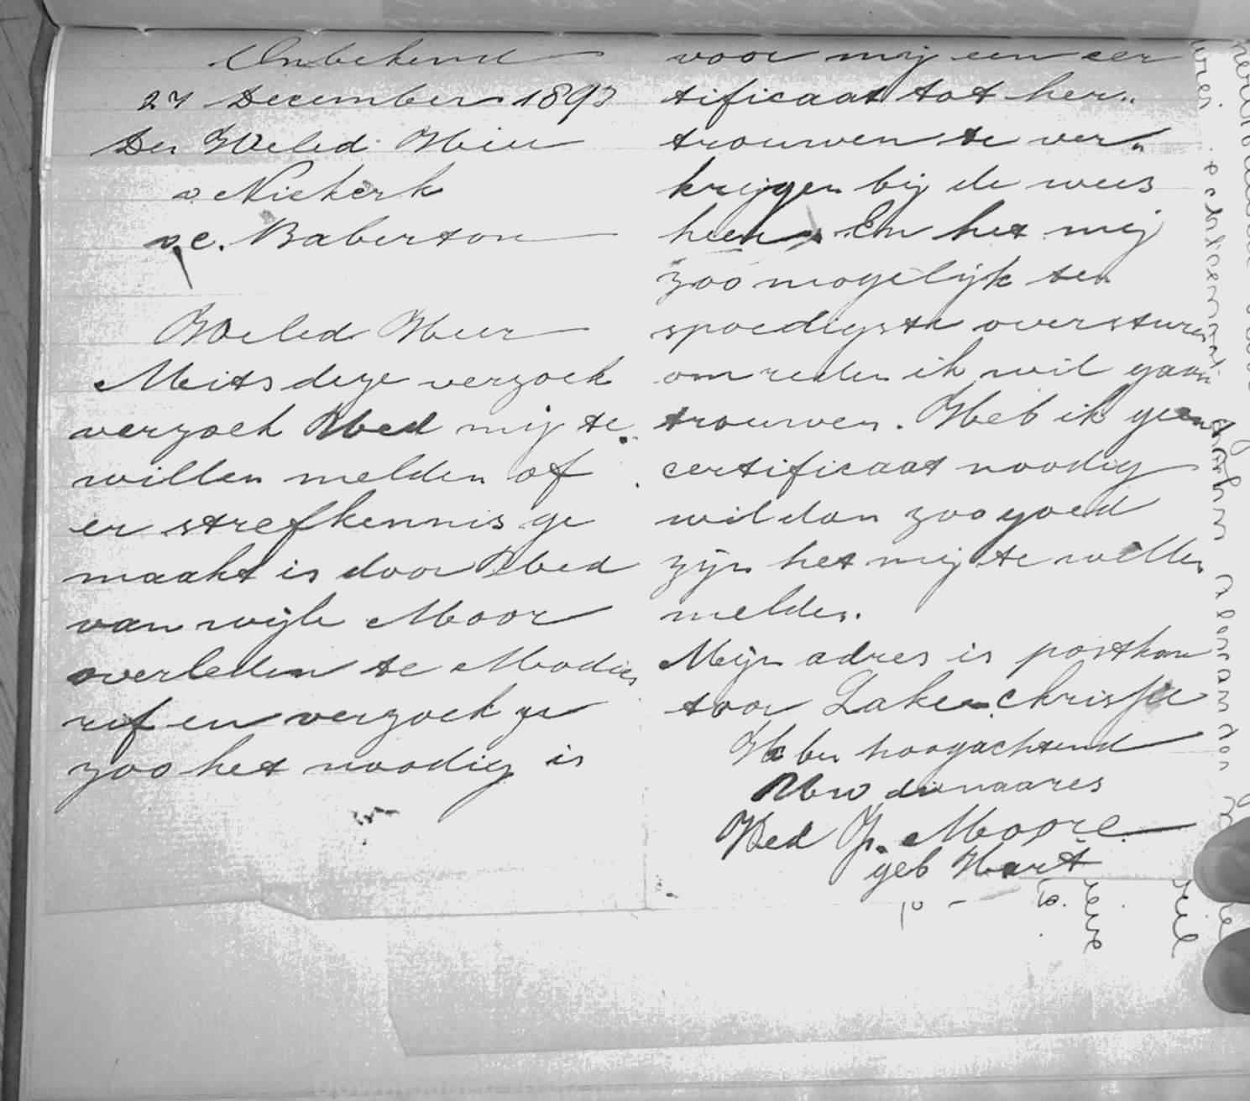 Onbekend
27 December 1893
Den Weled Heer
v Niekerk
v.c. Baberton
Weled Heer
Meits deze verzoek
verzoek Ued mij te
willen melden of
er strefkennis ge
maakt is door Ued
van wijle Moor
overleden te Modde
rif en verzoek ge
zoo het noodig is
voor mij een cer
tificaat tot her..
trouwen te ver
krijgen bij de wees
heer En het mij
zoo mogelijk ten
spoedigste oversturen
om reden ik wil gaan
trouwen. Heb ik geen
certificaat noodig
wil dan zoo goed
zijn het mij te willen
melden.
Mijn adres is postkan
toor Lake Chrissie
Ik ben hoogachtend
Uw dienaares
Wed J. Moore
geb Hart